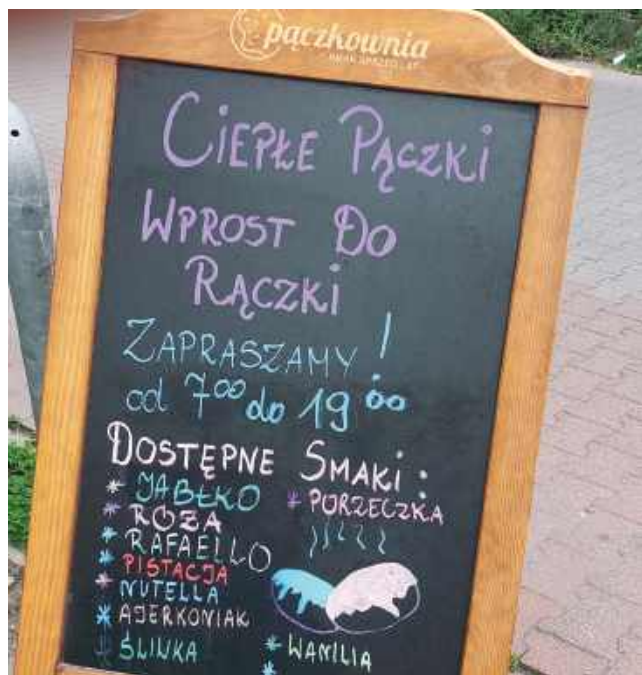 pączkownia
CIEPŁE PĄCZKI
WPROST DO
RĄCZKI
ZAPRASZAMY !
od 7⁰⁰ do 19⁰⁰
DOSTĘPNE SMAKI :
* JABŁKO
* PORZECZKA
* RÓŻA
* RAFAELLO
* PISTACJA
* NUTELLA
* AJERKONIAK
* ŚLIWKA
* WANILIA
*